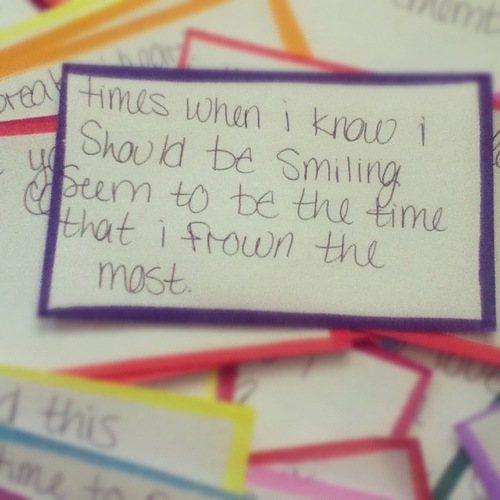 times when i know i
Should be smiling
Seem to be the time
that i frown the
most.
d this